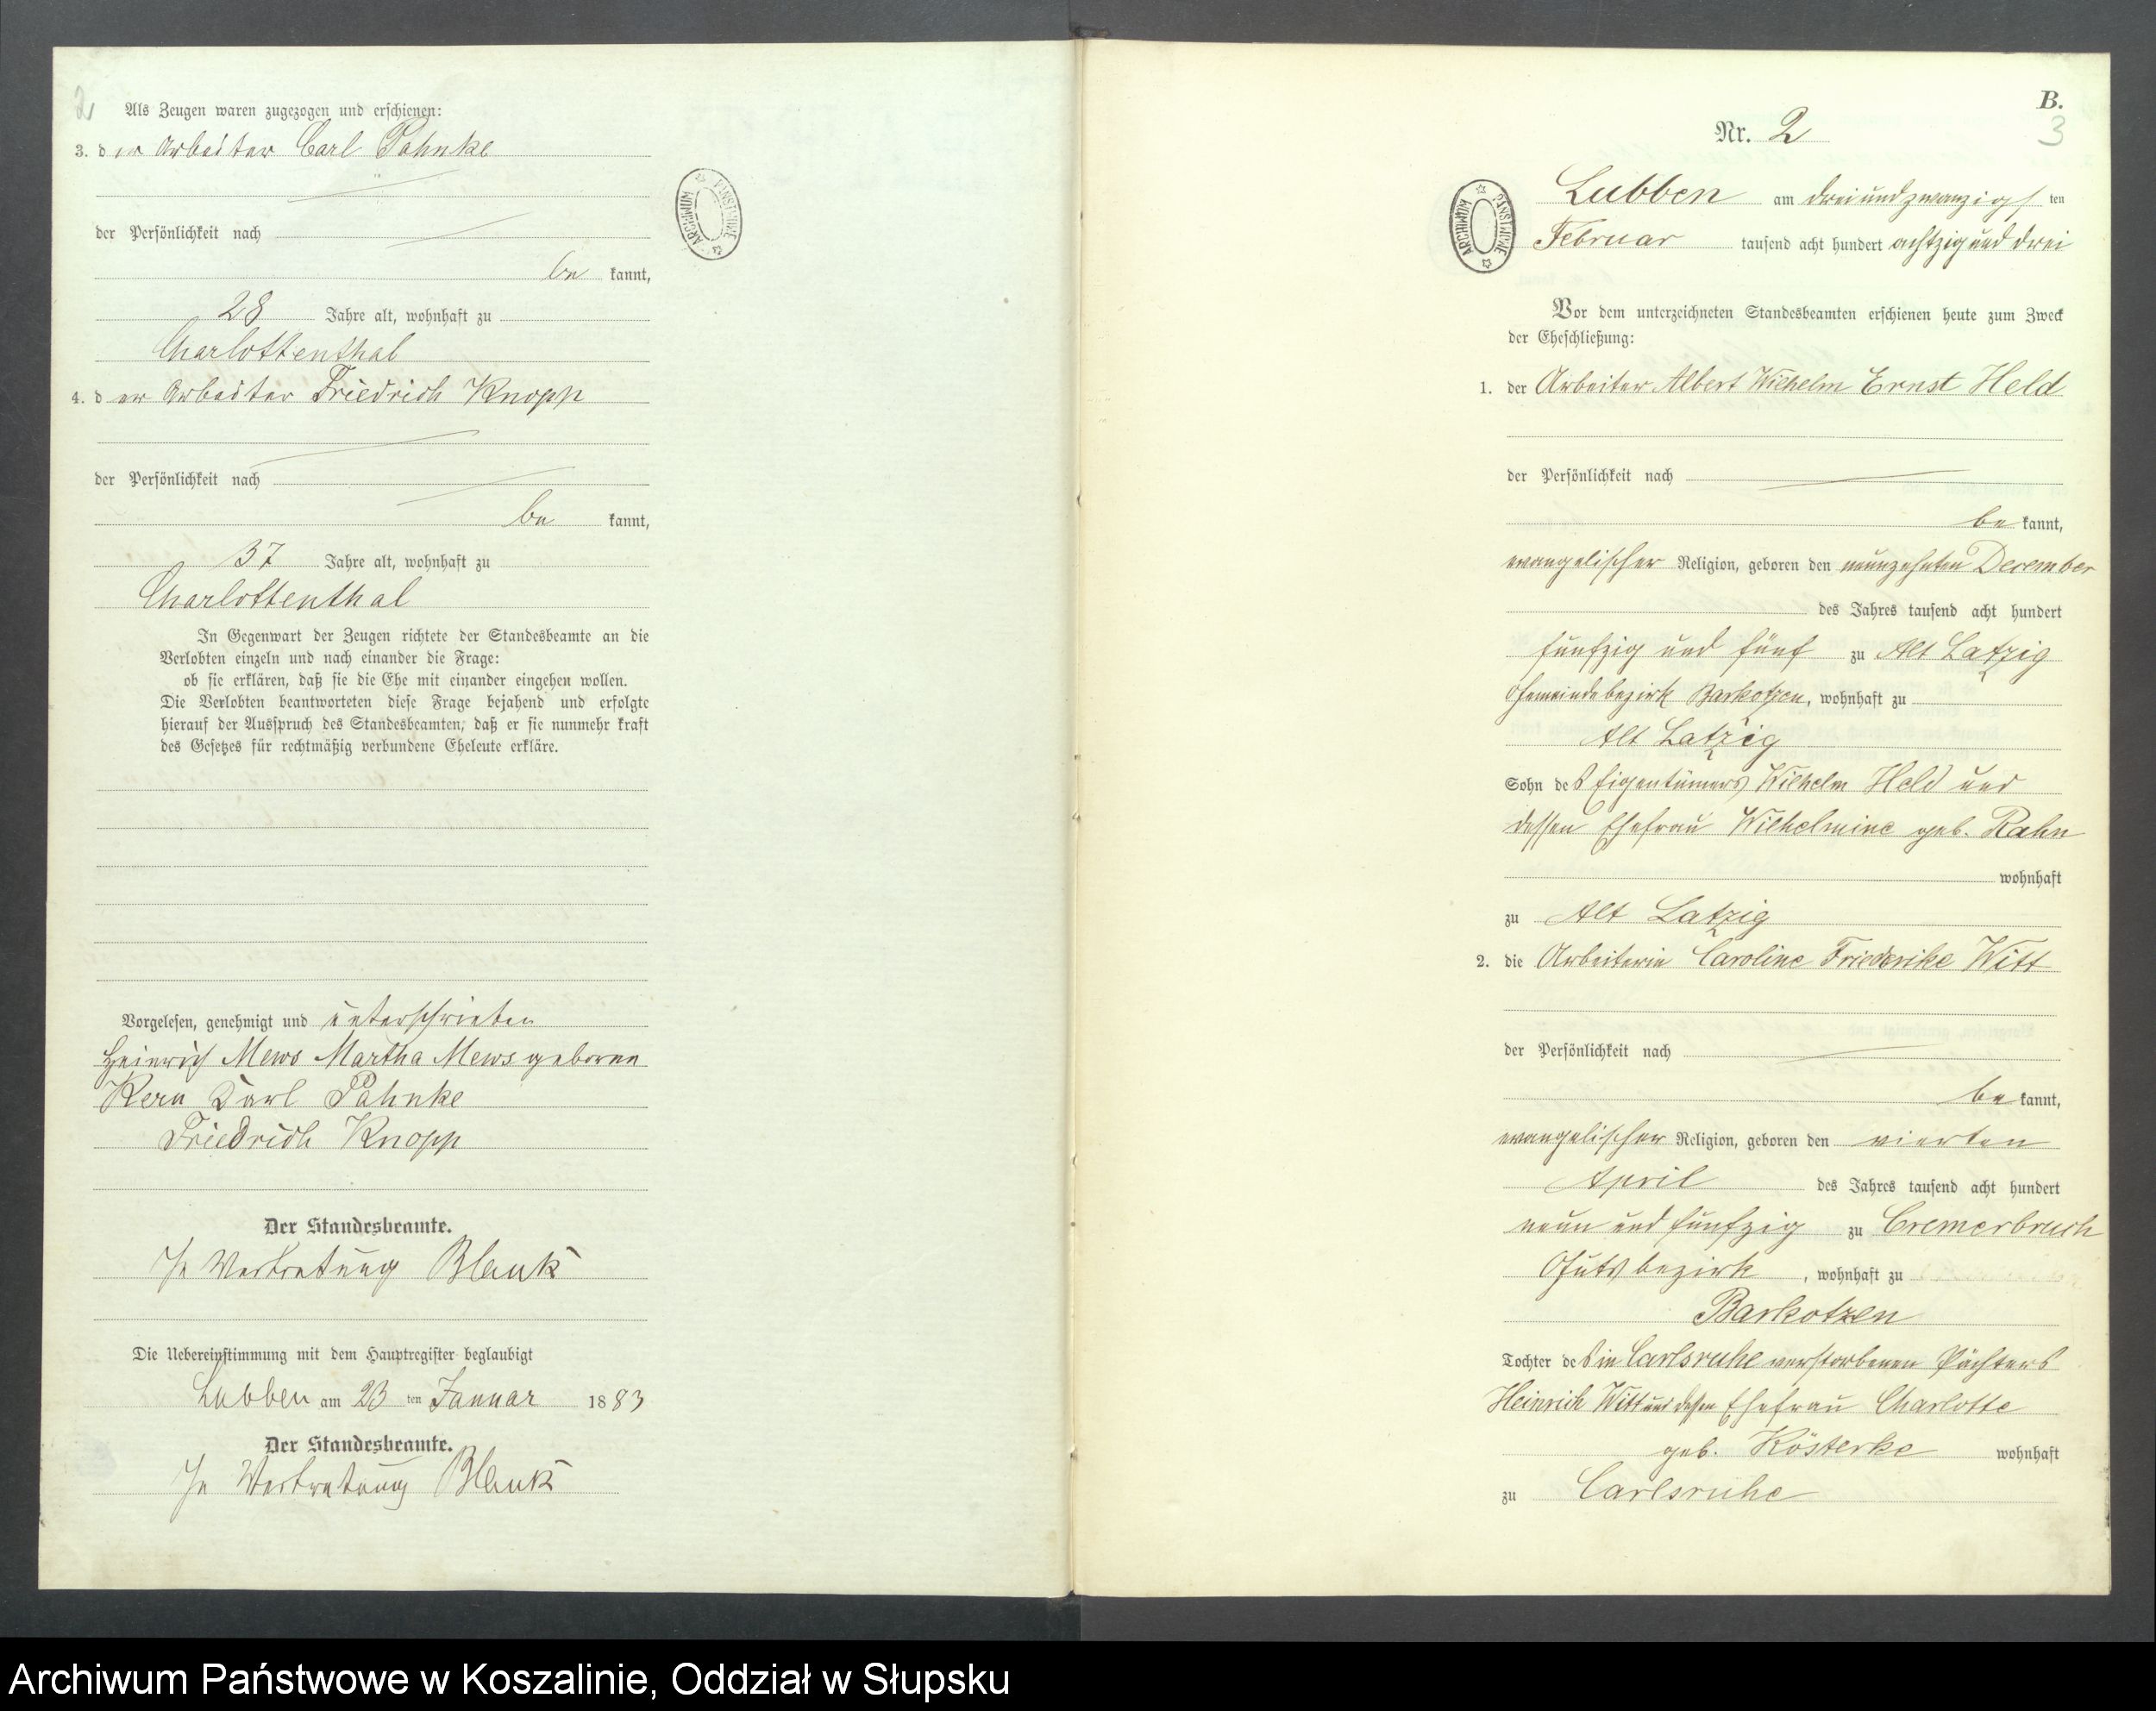 2
Als Zeugen waren zugezogen und erschienen:
3. der Arbeiter Carl Pahnke
der Persönlichkeit nach
be kannt,
28 Jahre alt, wohnhaft zu
Charlottenthal
4. der Arbeiter Friedrich Knopp
der Persönlichkeit nach
be kannt,
37 Jahre alt, wohnhaft zu
Charlottenthal
In Gegenwart der Zeugen richtete der Standesbeamte an die
Verlobten einzeln und nach einander die Frage:
ob sie erklären, daß sie die Ehe mit einander eingehen wollen.
Die Verlobten beantworteten diese Frage bejahend und erfolgte
hierauf der Ausspruch des Standesbeamten, daß er sie nunmehr kraft
des Gesetzes für rechtmäßig verbundene Eheleute erkläre.
Vorgelesen, genehmigt und unterschrieben
Heinrich Mews Martha Mews geborne
Kern Karl Pahnke
Friedrich Knopp
Der Standesbeamte.
In Vertretung Blank
Die Uebereinstimmung mit dem Hauptregister beglaubigt
Lubben am 23 ten Januar 1883
Der Standesbeamte.
In Vertretung Blank
ARCHIWUM PAŃSTWOWE
B.
3
Nr. 2
ARCHIWUM PAŃSTWOWE
Lubben am dreiundzwanzigsten
Februar tausend acht hundert achtzig und drei
Vor dem unterzeichneten Standesbeamten erschienen heute zum Zweck
der Eheschließung:
1. der Arbeiter Albert Wilhelm Ernst Held
der Persönlichkeit nach
be kannt,
evangelischer Religion, geboren den neunzehnten December
des Jahres tausend acht hundert
fünfzig und fünf zu Alt Latzig
Gemeindebezirk Barkotzen, wohnhaft zu
Alt Latzig
Sohn des Eigentümers Wilhelm Held und
dessen Ehefrau Wilhelmine geb. Rahn
wohnhaft
zu Alt Latzig
2. die Arbeiterin Caroline Friederike Witt
der Persönlichkeit nach
be kannt,
evangelischer Religion, geboren den vierten
April des Jahres tausend acht hundert
neun und fünfzig zu Cremerbruch
Gutsbezirk, wohnhaft zu
Barkotzen
Tochter des in Carlsruhe verstorbenen Pächters
Heinrich Witt und dessen Ehefrau Charlotte
geb. Kösterke wohnhaft
zu Carlsruhe
Archiwum Państwowe w Koszalinie, Oddział w Słupsku